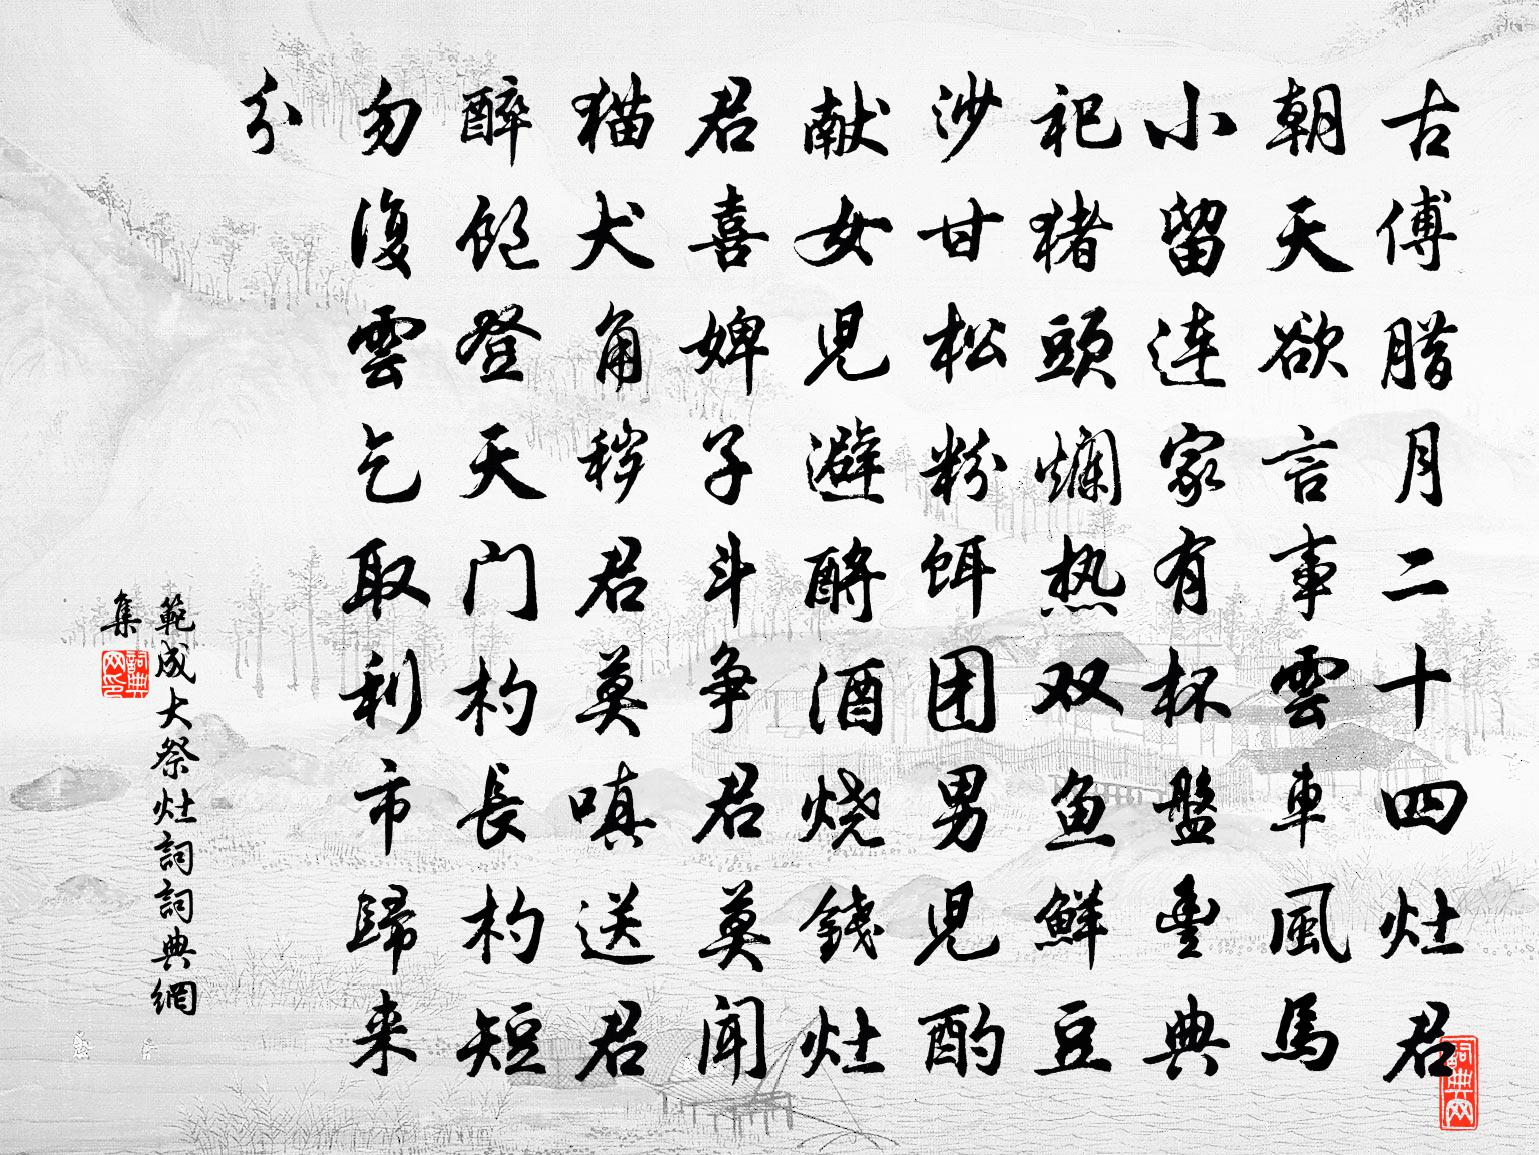 古傅腊月二十四灶君
朝天欲言事雲車風馬
小留连家有杯盤豊典
祀猪頭爛热双鱼鲜豆
沙甘松粉饵团男児酌
献女児避酧酒烧錢灶
君喜婢子斗争君莫闻
猫犬角秽君莫嗔送君
醉饱登天门杓長杓短
勿復雲乞取利市歸来
分
範成大祭灶詞詞典網
集
詞典网印
詞典网